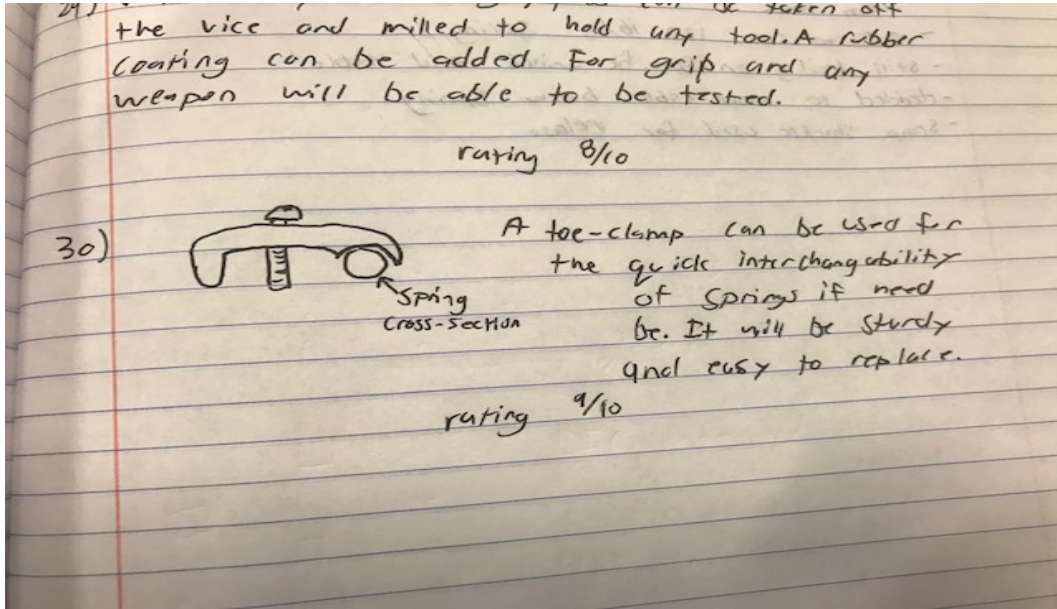 29)
be taken off
the vice and milled to hold any tool. A rubber
coating can be added for grip and any
weapon will be able to be tested.
rating 8/10
30)
A toe-clamp can be used for
the quick interchangability
of springs if need
be. It will be sturdy
and easy to replace.
spring
cross-section
rating 9/10